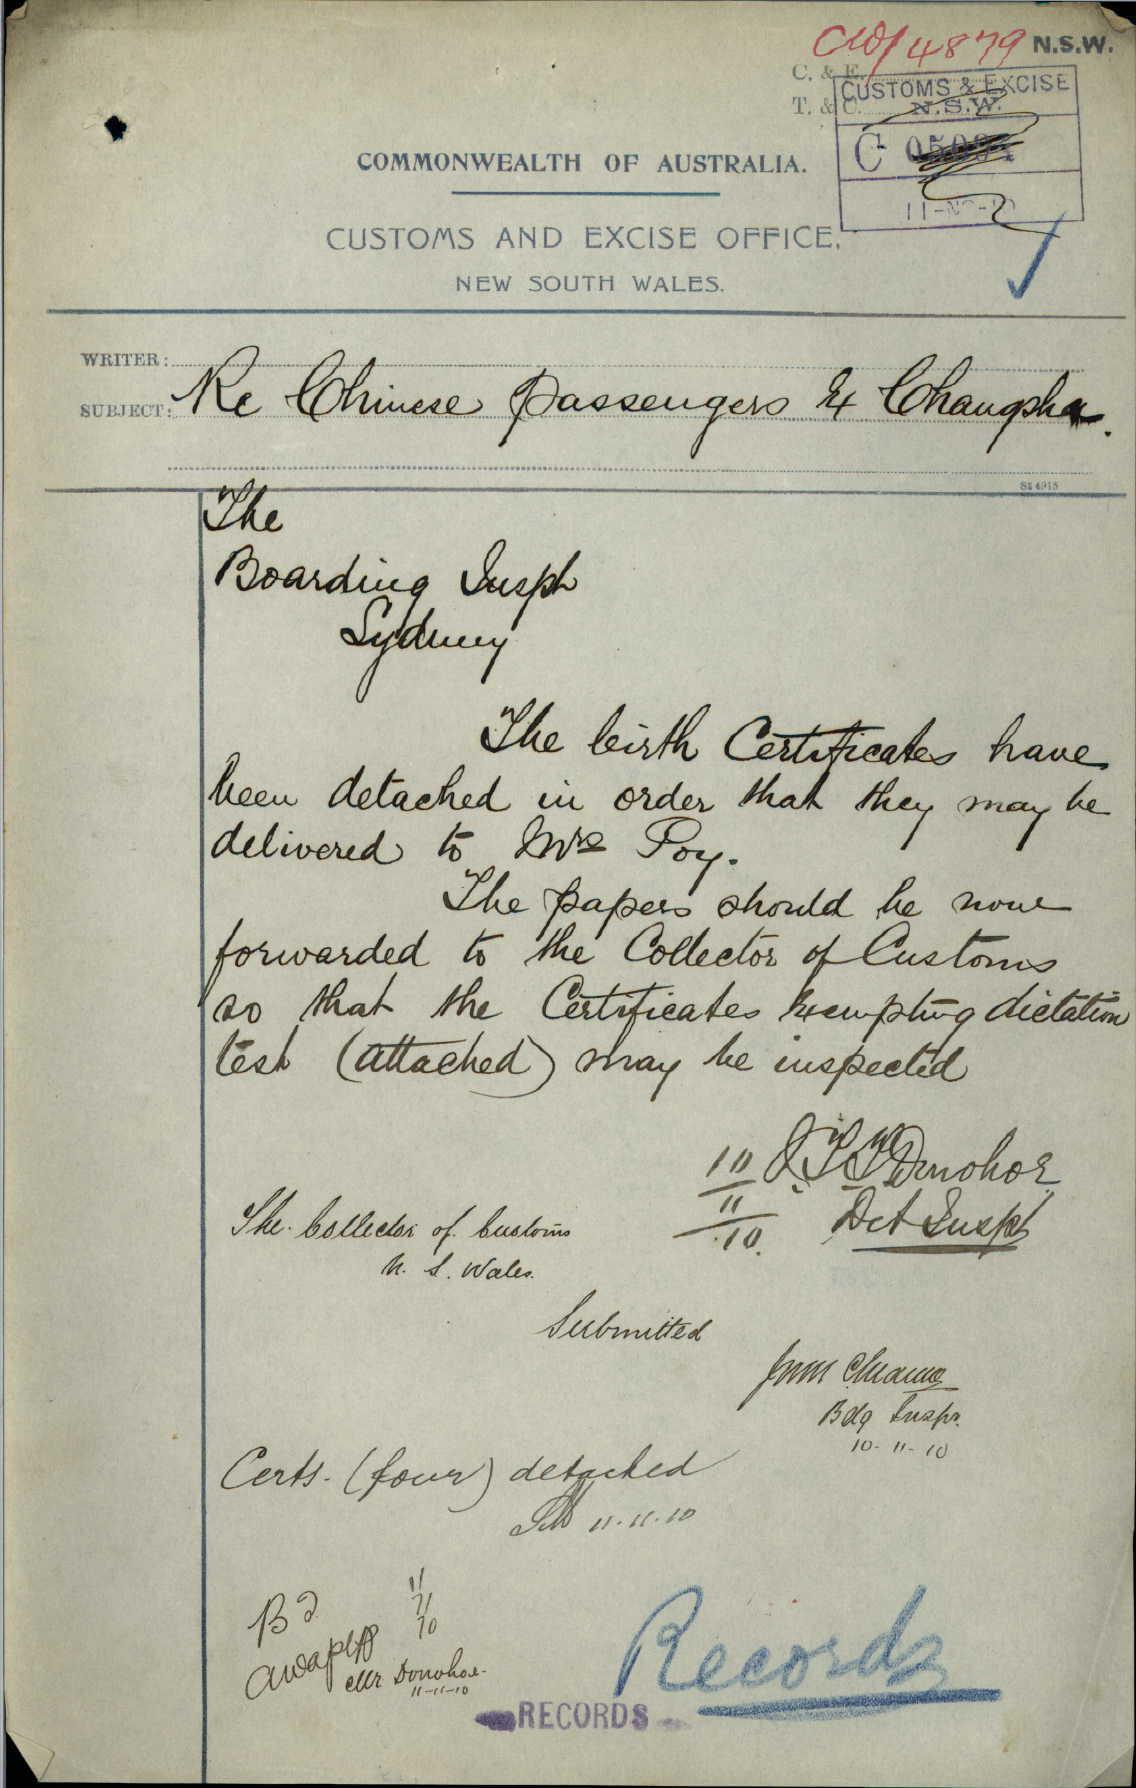 C10/4879 N.S.W.
C. & E.
T. & C.
CUSTOMS & EXCISE
N.S.W.
C
COMMONWEALTH OF AUSTRALIA.
CUSTOMS AND EXCISE OFFICE,
NEW SOUTH WALES.
WRITER:
SUBJECT: Re Chinese passengers Ex Changsha.
The
Boarding Inspr
Sydney
The birth Certificates have
been detached in order that they may be
delivered to Mrs Poy.
The papers should be now
forwarded to the Collector of Customs
so that the Certificates Exempting dictation
test (attached) may be inspected
10 J. T. T. Donohoe
11
10. Det Inspr
The Collector of Customs
N. S. Wales.
Submitted
Bdg Inspr.
10-11-10
Certs. (four) detached
11.11.10
11
11
10
Mr Donohoe
11-11-10
Records
RECORDS